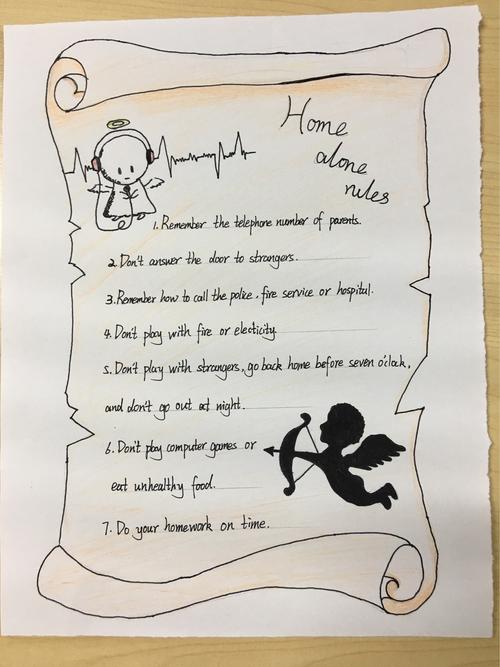 Home
alone
rules
1. Remember the telephone number of parents.
2. Don't answer the door to strangers.
3. Remember how to call the police, fire service or hospital.
4. Don't play with fire or electicity.
5. Don't play with strangers, go back home before seven o'clock,
and don't go out at night.
6. Don't play computer games or
eat unhealthy food.
7. Do your homework on time.